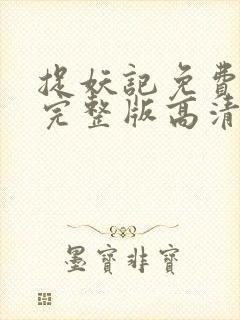 捉妖記免費
完整版高清
墨寶非寶